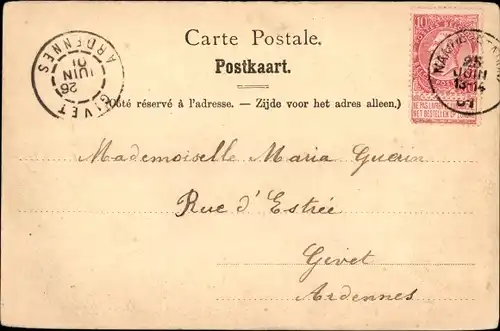 Carte Postale.
Postkaart.
(Côté réservé à l'adresse. — Zijde voor het adres alleen.)
GIVET
26
JUIN
01
ARDENNES
10
25
JUIN
13-14
01
NE PAS LIVRER
NIET BESTELLEN
Mademoiselle Maria Guerin
Rue d'Estrée
Givet
Ardennes